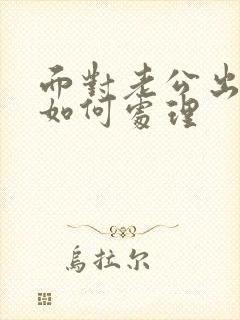 而對老公出
如何處理
烏拉尔